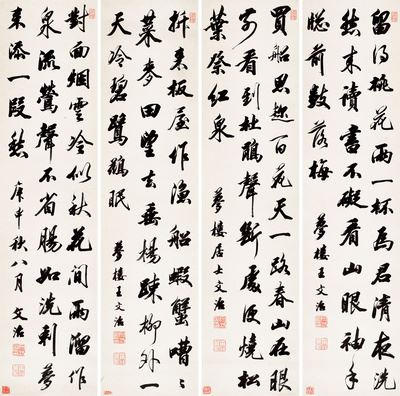 留得桃花雨一杯為君清夜洗
愁来讀書不礙看山眼袖手
牕前數落梅 夢樓王文治
買船思趁百花天一路春山在眼
前看到杜鵑聲斷處便燒松
葉煮紅泉 夢樓居士文治
拆来板屋作漁船蝦蟹嘈〻
菜麥田望去垂楊疎柳外一
天冷碧鷺鷀眠 夢樓王文治
對面烟雲冷似秋花間雨溜作
泉流鶯聲不省腸如洗剩夢
来添一段愁 庚申秋八月 文治